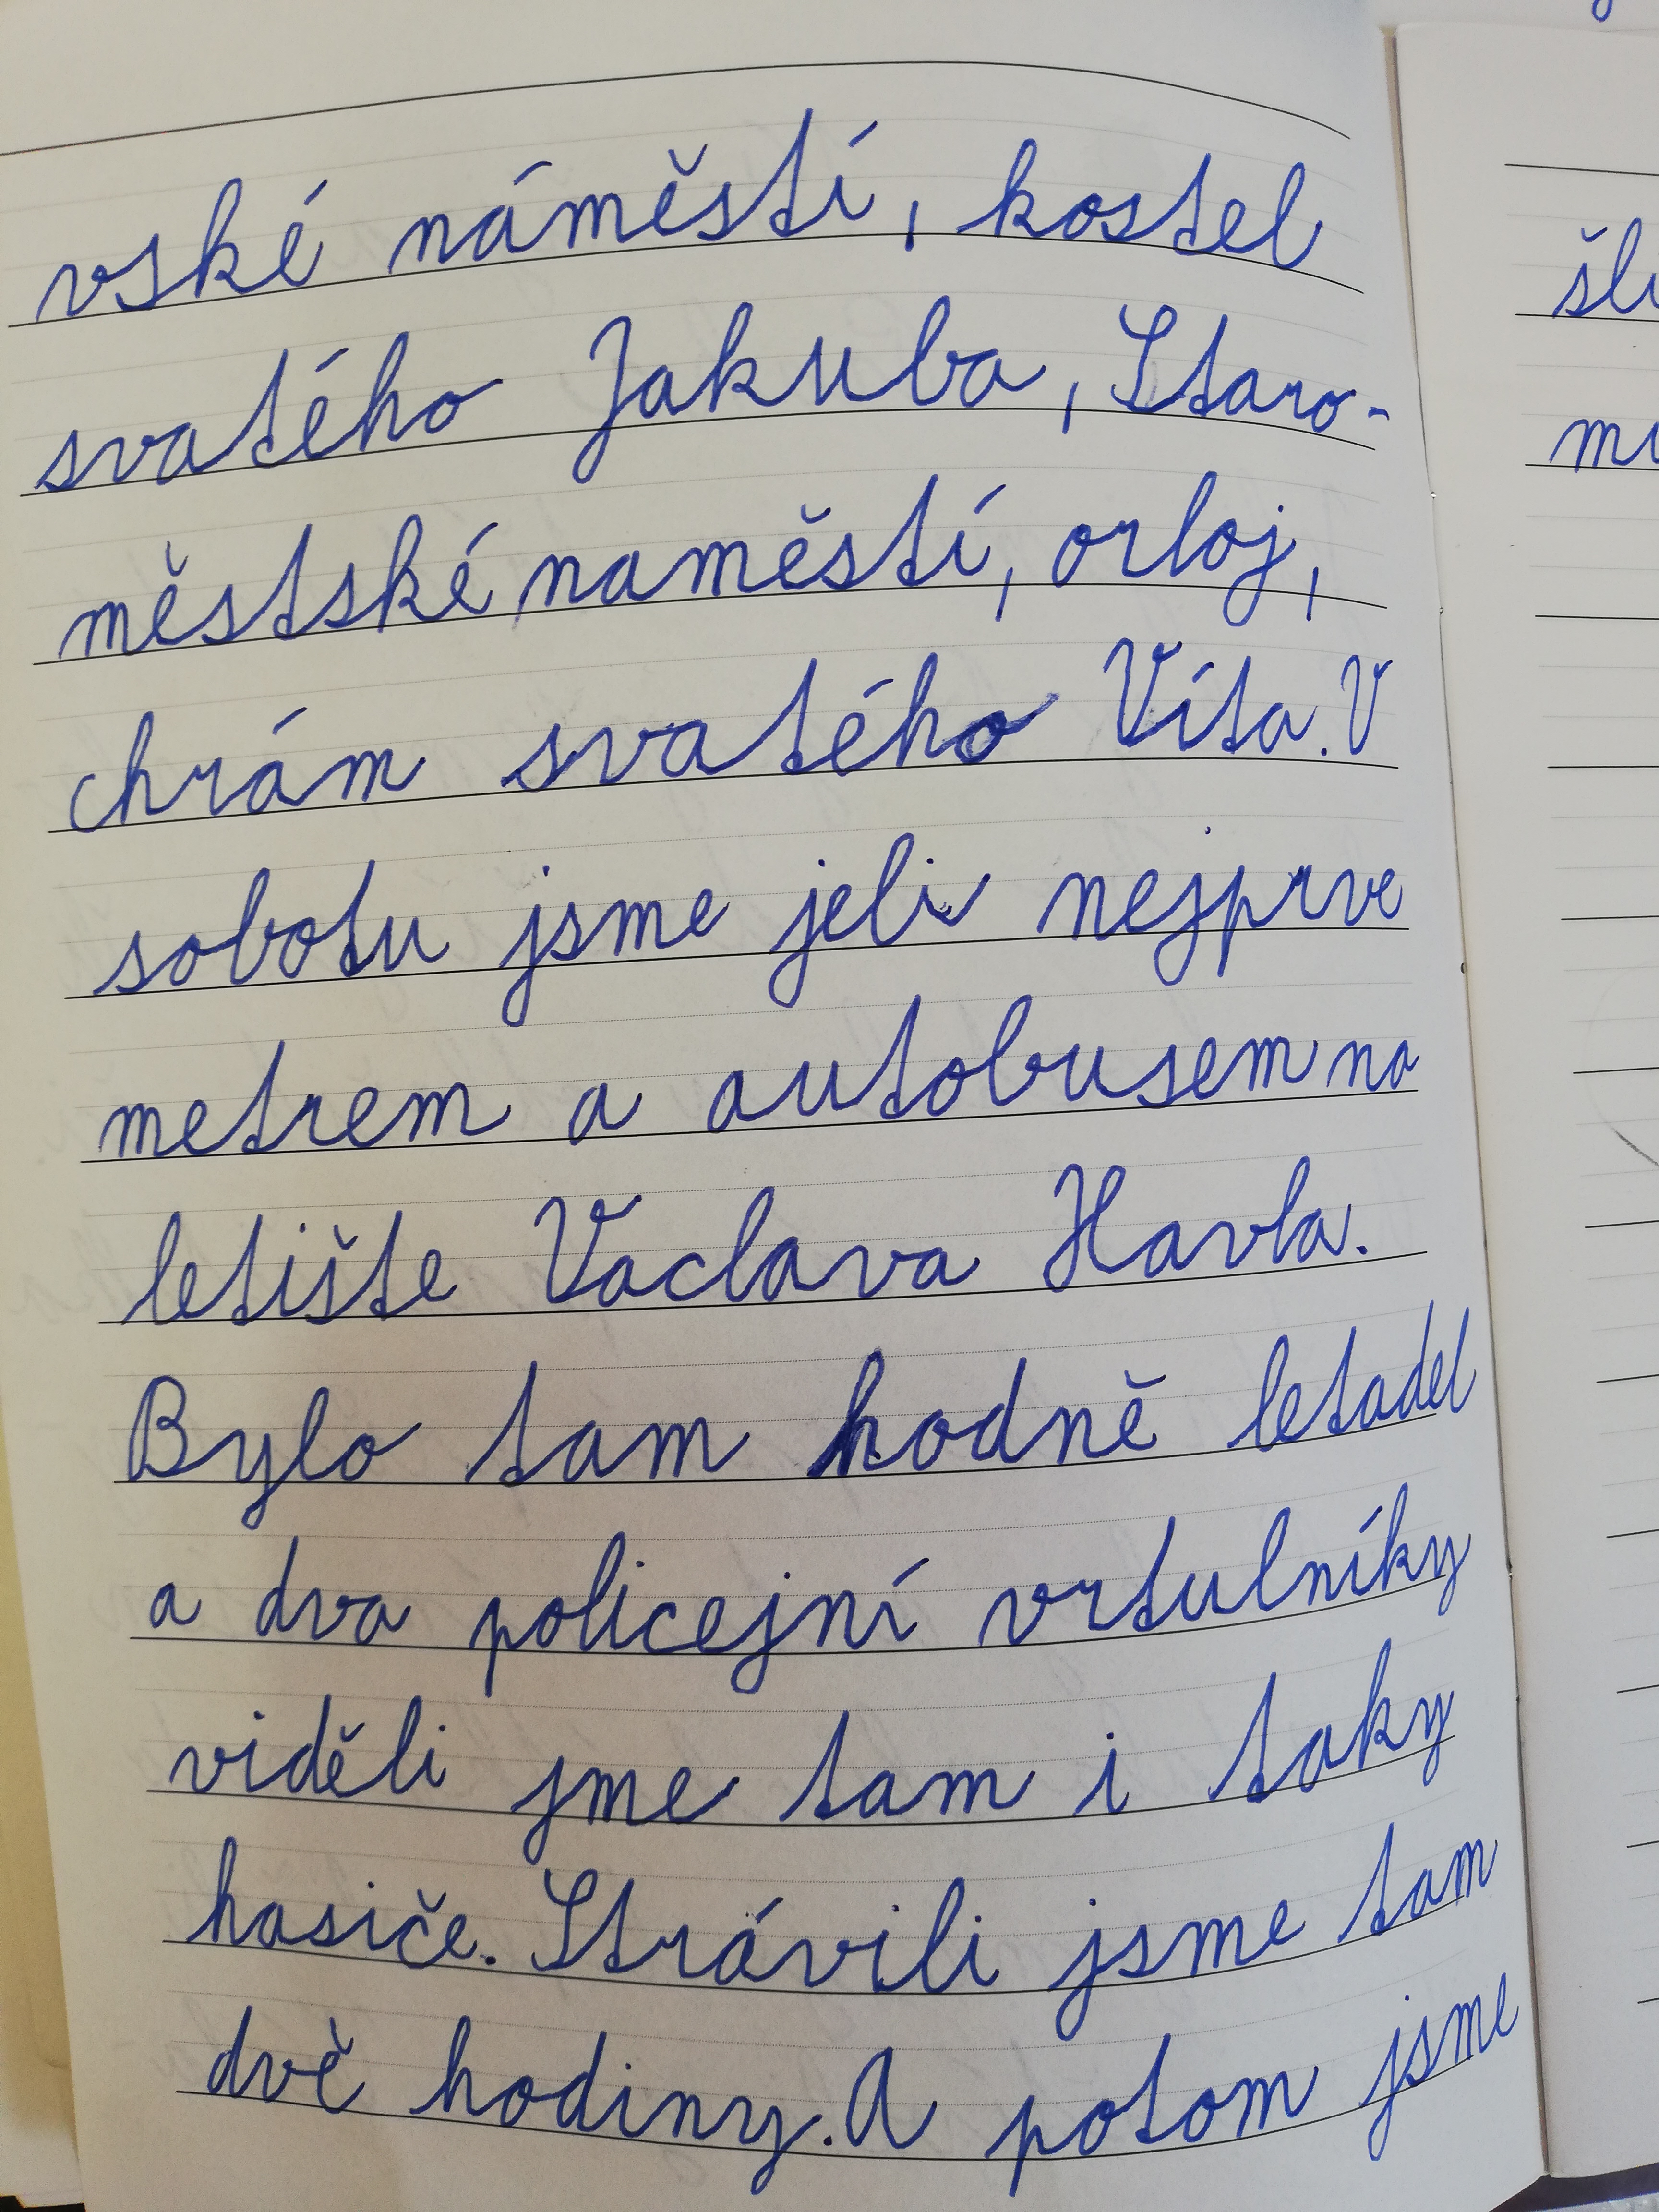 vské náměstí, kostel
svatého Jakuba, Staro-
městské naměstí, orloj,
chrám svatého Víta. V
sobotu jsme jeli nejprve
metrem a autobusem na
letište Vaclava Havla.
Bylo tam hodně letadel
a dva policejní vrtulníky
viděli jme tam i taky
hasiče. Strávili jsme tam
dvě hodiny. A potom jsme